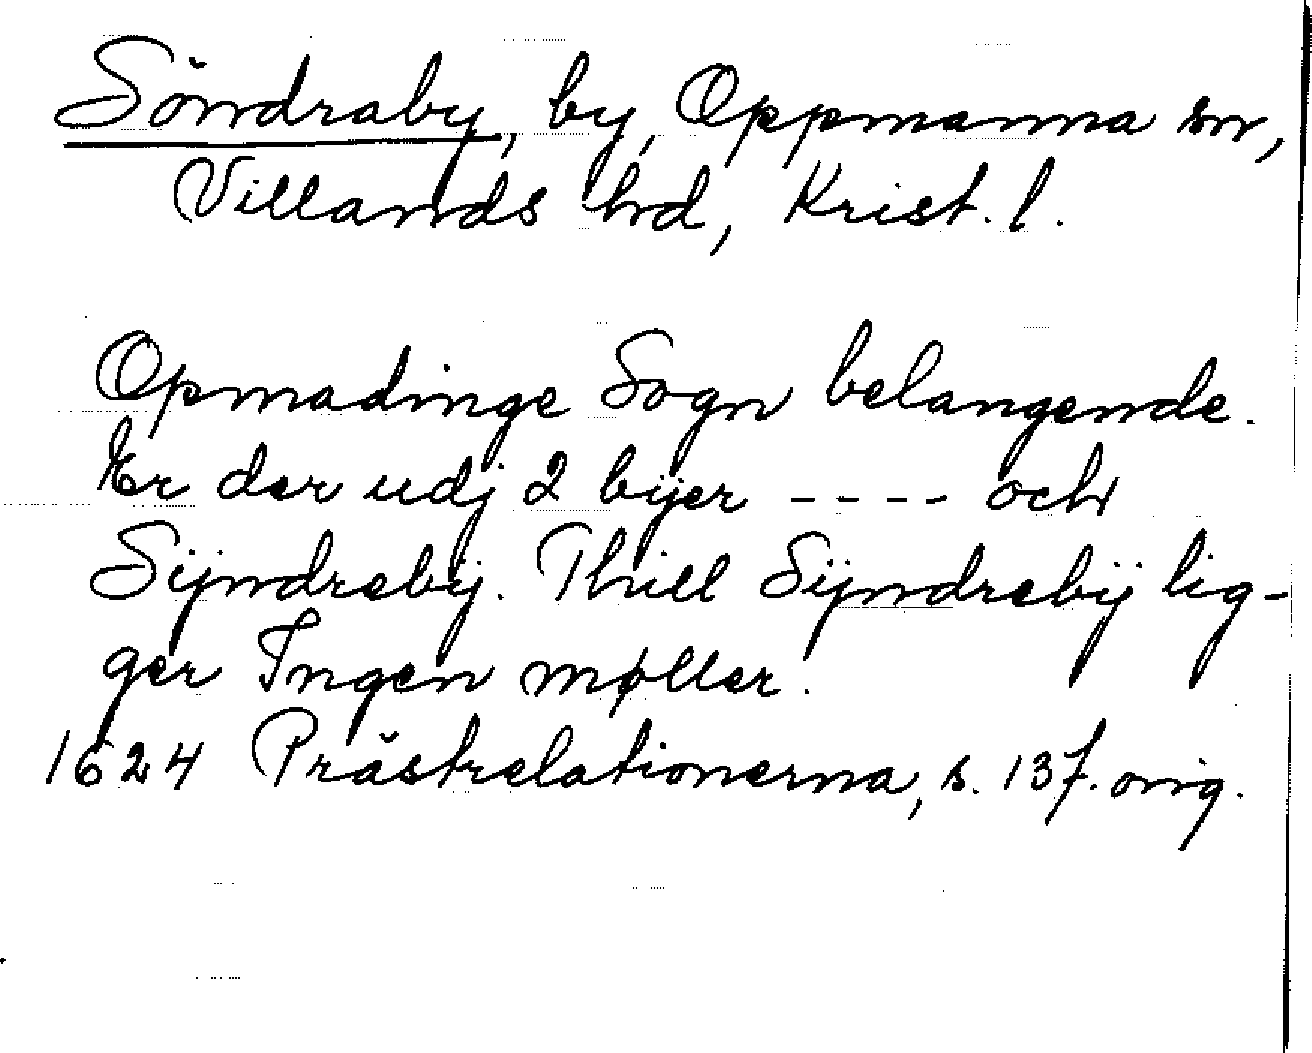 Söndraby, by, Oppmanna sn,
Villands hd, Krist. l.
Opmadinge Sogn belangende.
Er der udj 2 bÿer ---- och
Sÿndrebÿ. Thill Sÿndrebÿ lig-
ger Ingen møller.
1624 Prästrelationerna, s. 137. orig.